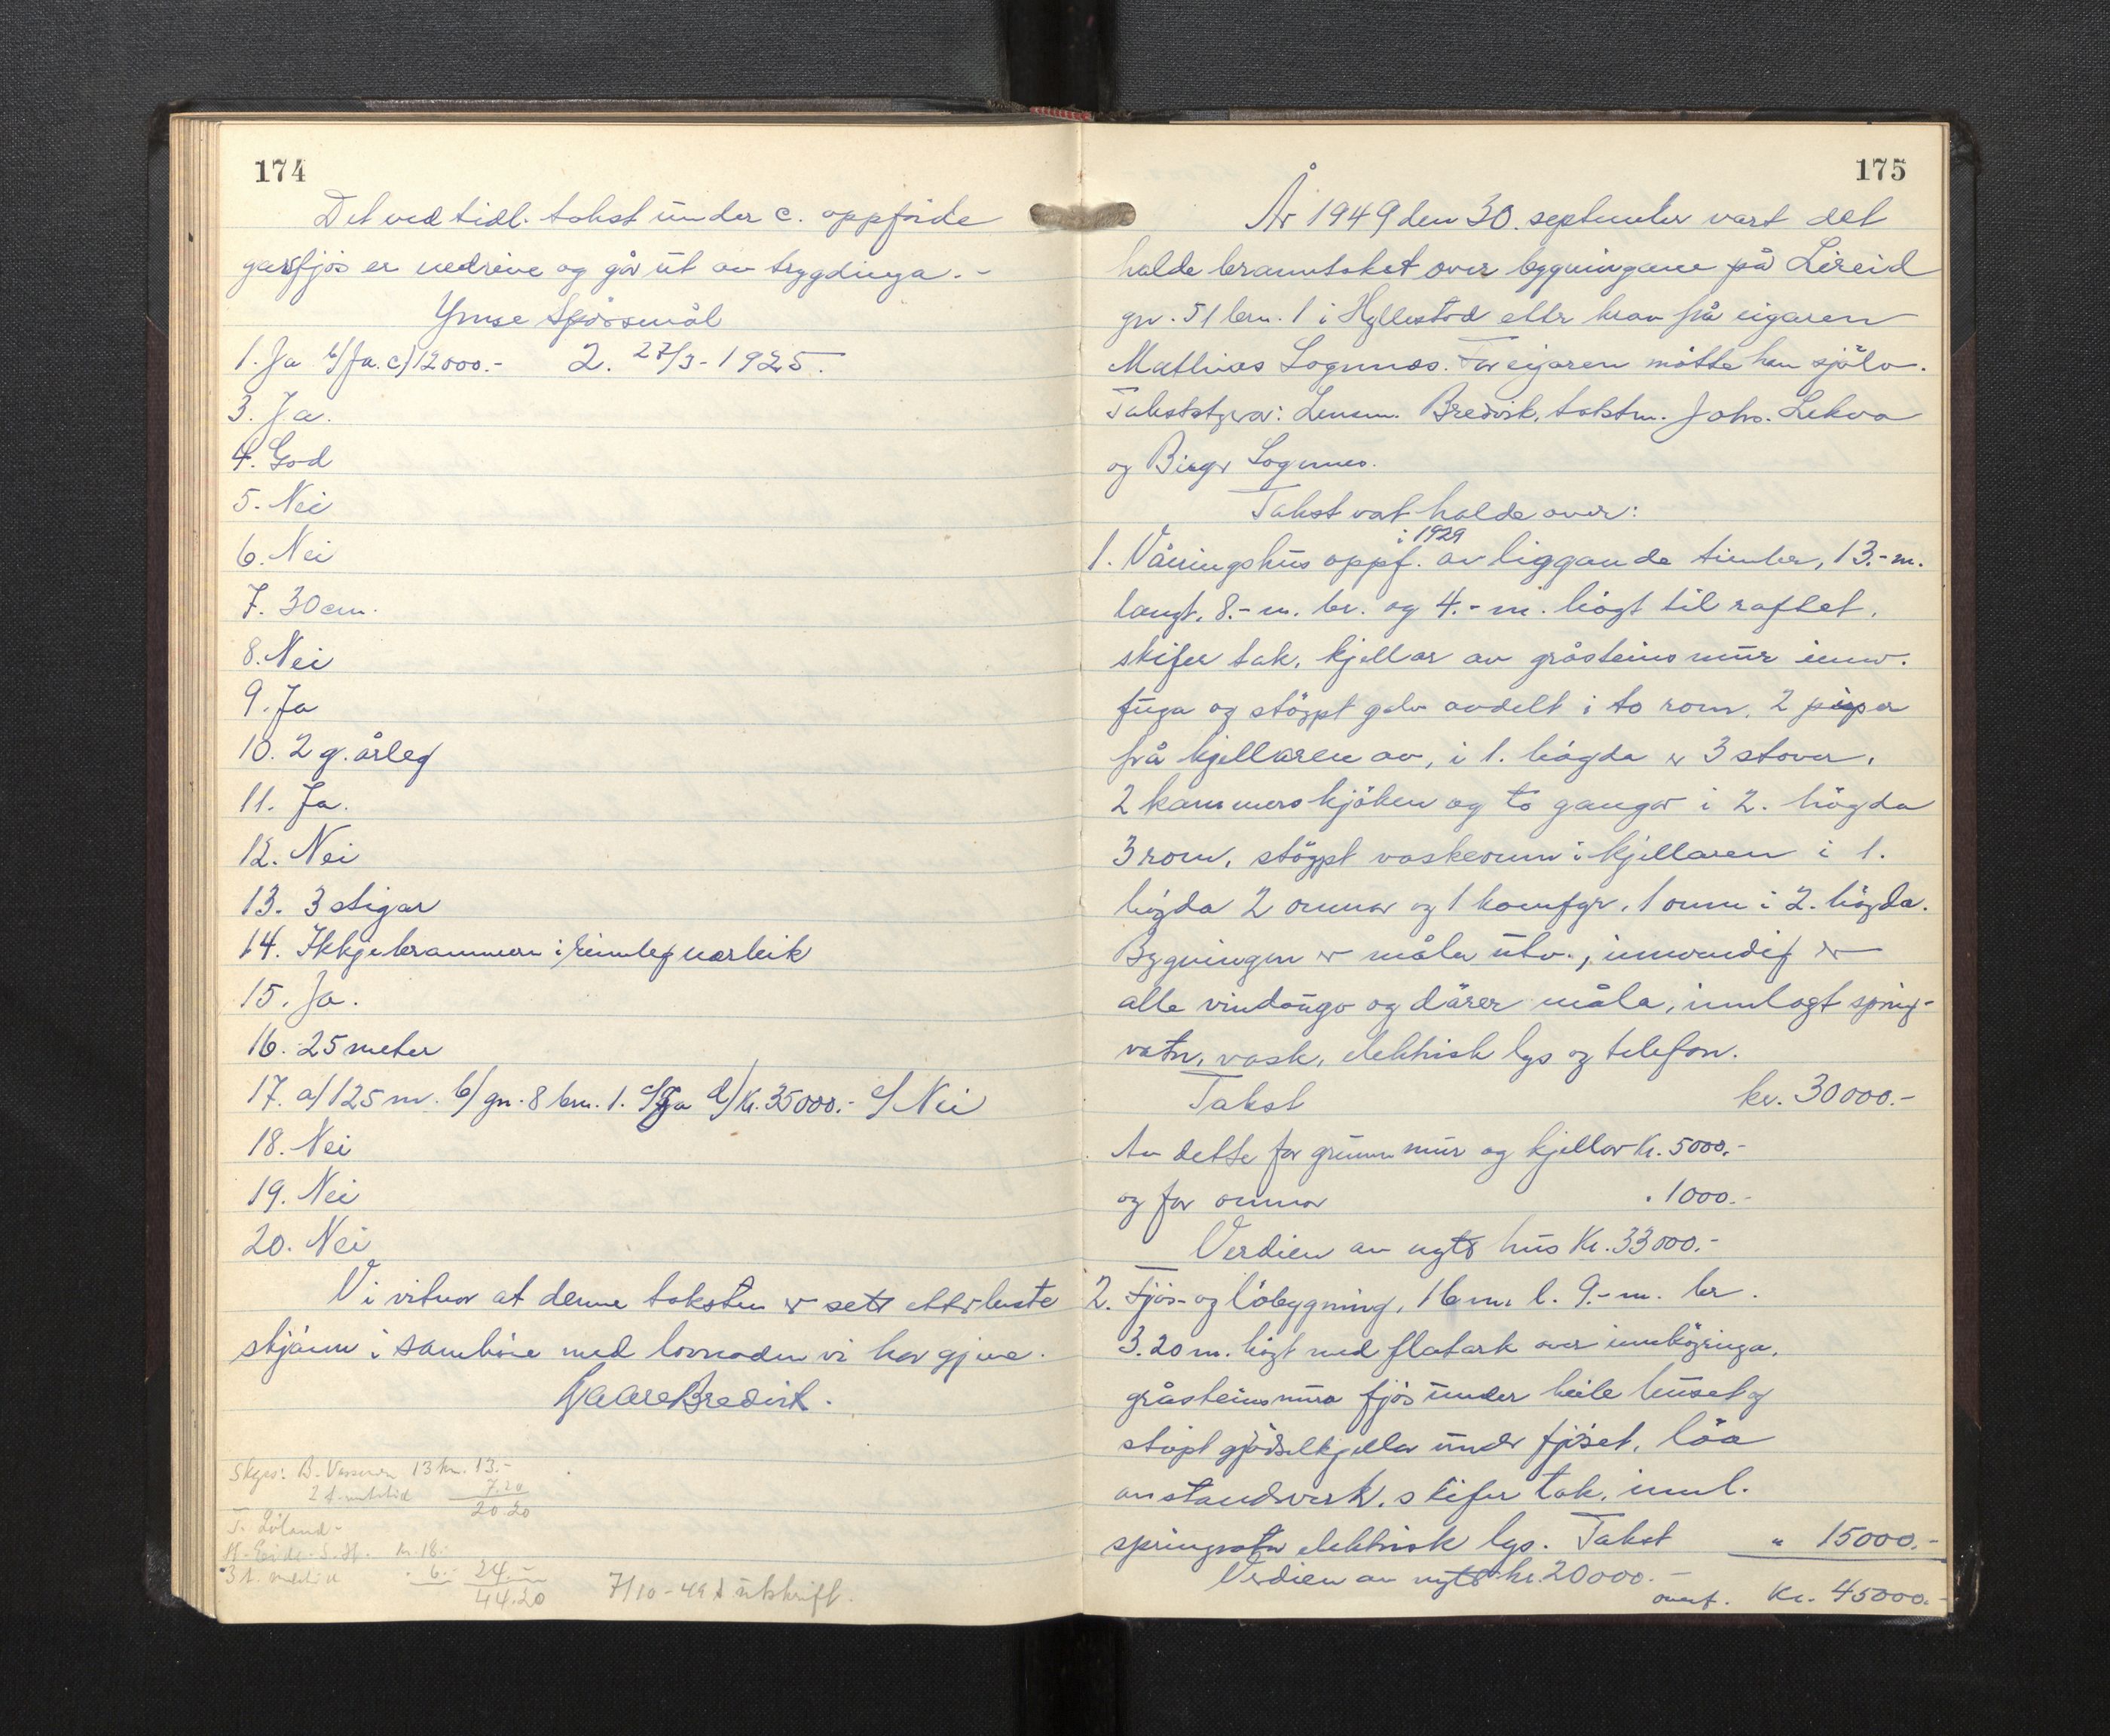 174
Det ved tidl. takst under c. oppførde
garsfjøs er nedrive og går ut av trygdinga. -
Ymse Spørsmål
1. Ja b/ Ja. c/ 12000.- 2. 27/3-1925.
3. Ja.
4. God
5. Nei
6. Nei
7. 30 cm.
8. Nei
9. Ja
10. 2 g. årleg
11. Ja.
12. Nei
13. 3 stigar
14. Ikkje brannvern i rimeleg nærleik
15. Ja.
16. 25 meter
17. a/ 125 m. b/ gn. 8 brn. 1. c/ Ja d/ Kr. 35000.- e/ Nei
18. Nei
19. Nei
20. Nei
Vi vitnar at denne taksten er sett etter beste
skjønn i samhöve med lovnaden vi har gjeve.
Kaare Bredvik.
Skyss: B. 13 km. 13.-
7.20
20.20
T. Loland -
H. Eide - S. H. kr. 18.-
" 6.- 24.-
44.20 7/10-49 utskrift.
175
År 1949 den 30. september vart det
halde branntakst over bygningane på Lireid
gn. 51 brn. 1 i Hyllestad etter krav frå eigaren
Mathias Sognnes. For eigaren møtte han sjölv.
Takststyrar: Lensm. Bredvik, takstm. Johs. Lekva
og Birger Sognnes.
Takst vart halde over:
i 1929
1. Våningshus oppf. av liggande timber, 13.- m.
langt, 8.- m. br. og 4.- m. högt til raftet,
skifer tak, kjellar av gråsteinsmur innv.
fuga og stöypt golv avdelt i to rom, 2 piper
frå kjellaren av, i 1. högda er 3 stover,
2 kammers kjöken og to gangar i 2. högda
3 rom, stöypt vaskerum i kjellaren i 1.
högda 2 omnar og 1 komfyr, 1 omn i 2. högda.
Bygningen er måla utv., innvendig er
alle vindaugo og dörer måla, innlagt spring-
vatn, vask, elektrisk lys og telefon.
Takst kr. 30000.-
Av dette for grunnmur og kjellar kr. 5000.-
og for omnar " 1000.-
Verdien av nytt hus Kr. 33000.-
2. Fjös- og löbygning, 16 m. l. 9.- m. br.
3.20 m. högt med flatark over innköyringa,
gråsteinsmura fjös under heile huset og
stöpt gjödselkjellar under fjöset, löa
av standverk, skifer tak, innl.
springvatn elektrisk lys. Takst " 15000.-
Verdien av nytt kr. 20000.-
overf. Kr. 45000.-